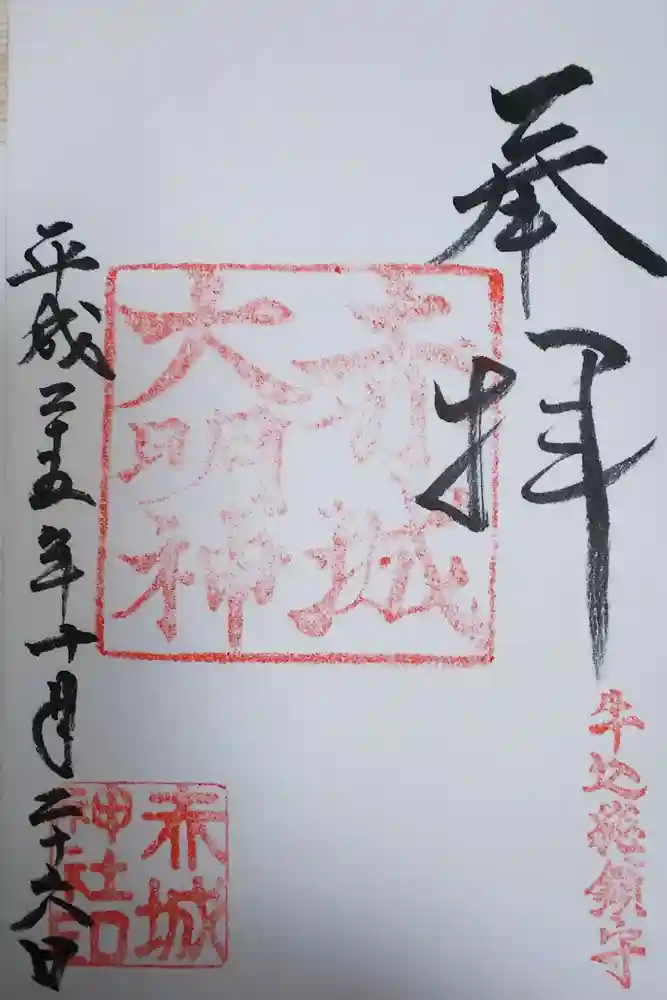 奉拝
牛込総鎮守
赤城
大明神
平成二十五年十月二十六日
赤城
神社印